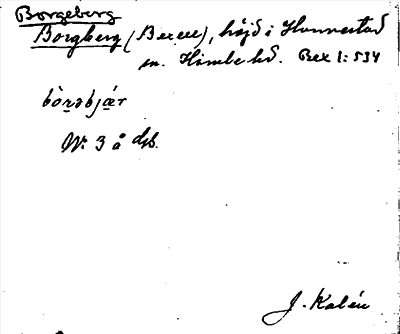 Borgeberg
Borgberg (Bexell), höjd i Hunnestad
sn. Himle hd. Bex 1:534
bòrəbjár
Nr 3 å dsb.
J. Kalén